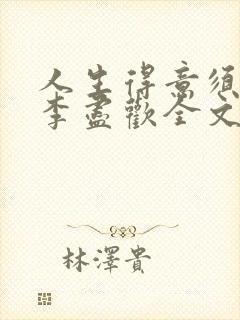 人生得意須
李盡歡全文
林澤貴